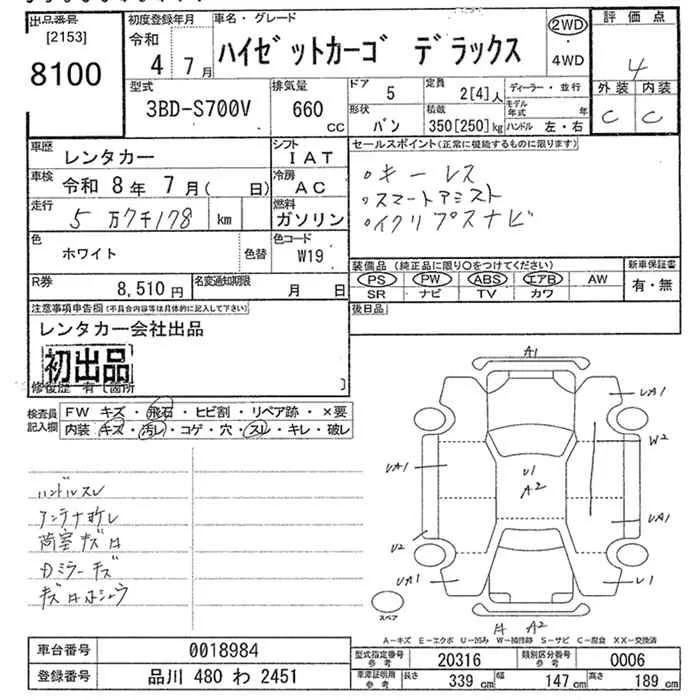 出品番号
[2153]
8100
初度登録年月
令和
4年
7月
車名・グレード
ハイゼットカーゴ デラックス
2WD
・
4WD
評価点
4
外装 内装
C C
型式
3BD-S700V
排気量
660
CC
ドア
5
定員
2[4]人
形状
バン
積載
350[250]kg
ディーラー・並行
モデル年式 年
ハンドル 左・右
車歴
レンタカー
シフト
IAT
車検
令和 8年 7月( 日)
冷房
AC
走行
5万7千178 km
燃料
ガソリン
色
ホワイト
色替
色コード
W19
R券
8,510円
名変通知期限
月 日
セールスポイント(正常に機能するものに限ります)
・キーレス
・スマートアシスト
・イクリプスナビ
装備品(純正品に限り○をつけてください)
PS PW ABS エアB AW
SR ナビ TV カワ
新車保証書
有・無
後日品
注意事項申告欄(不具合内容等は具体的に記入して下さい)
レンタカー会社出品
初出品
修復歴 有[箇所 ]
検査員記入欄
FW キズ・飛石・ヒビ割・リペア跡・×要
内装・キズ・汚レ・コゲ・穴・スレ・キレ・破レ
ハンドルスレ
アンテナオレ
荷室キズ
カミラーキズ
A1
UA1
W2
UA1
U1
A2
UA1
U2
UA1
U1
A2
スペア
A-キズ E-エクボ U-凹み W-補修跡 S-サビ C-腐食 XX-交換済
車台番号
0018984
登録番号
品川 480 わ 2451
型式指定番号
参考
20316
類別区分番号
参考
0006
車庫証明用
参考
長さ 339cm
幅 147cm
高さ 189cm